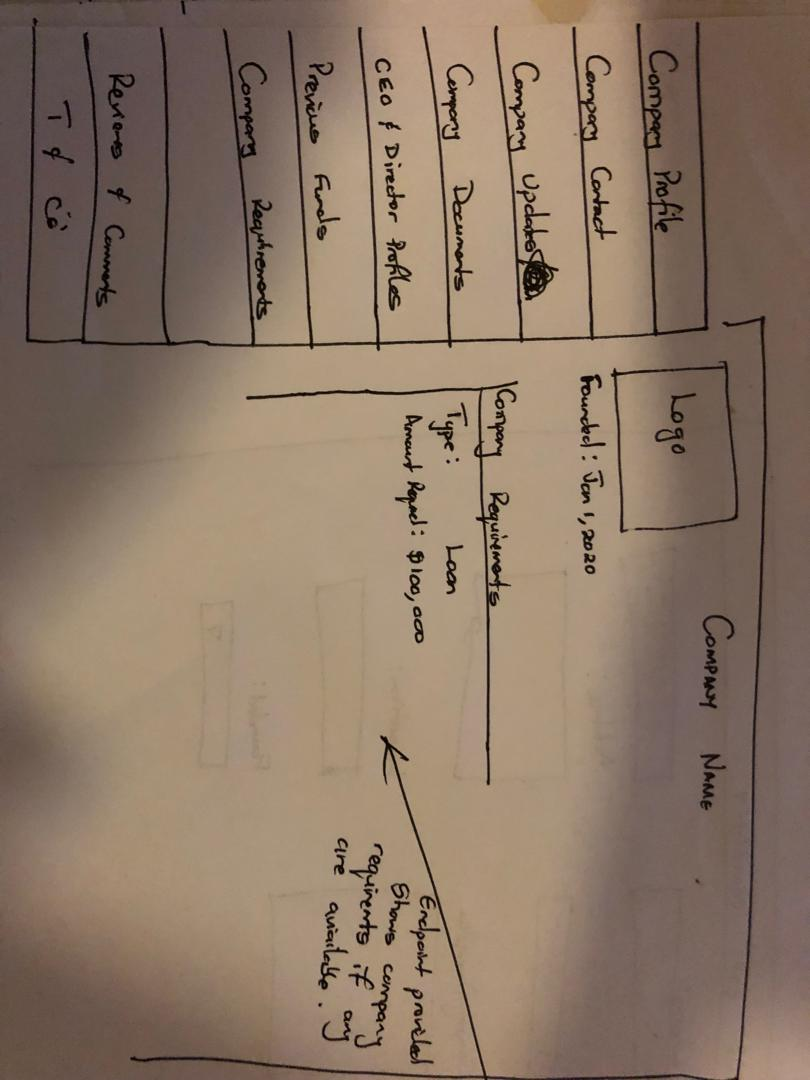 Company Profile
Company Contact
Company Updates
Company Documents
CEO & Director Profiles
Previous Funds
Company Requirements
Reviews & Comments
T & Cs'
Logo
COMPANY NAME
Founded: Jan 1, 2020
Company Requirements
Type: Loan
Amount Requed: $100,000
Endpoint provided
Shows company
requirments if any
are available.